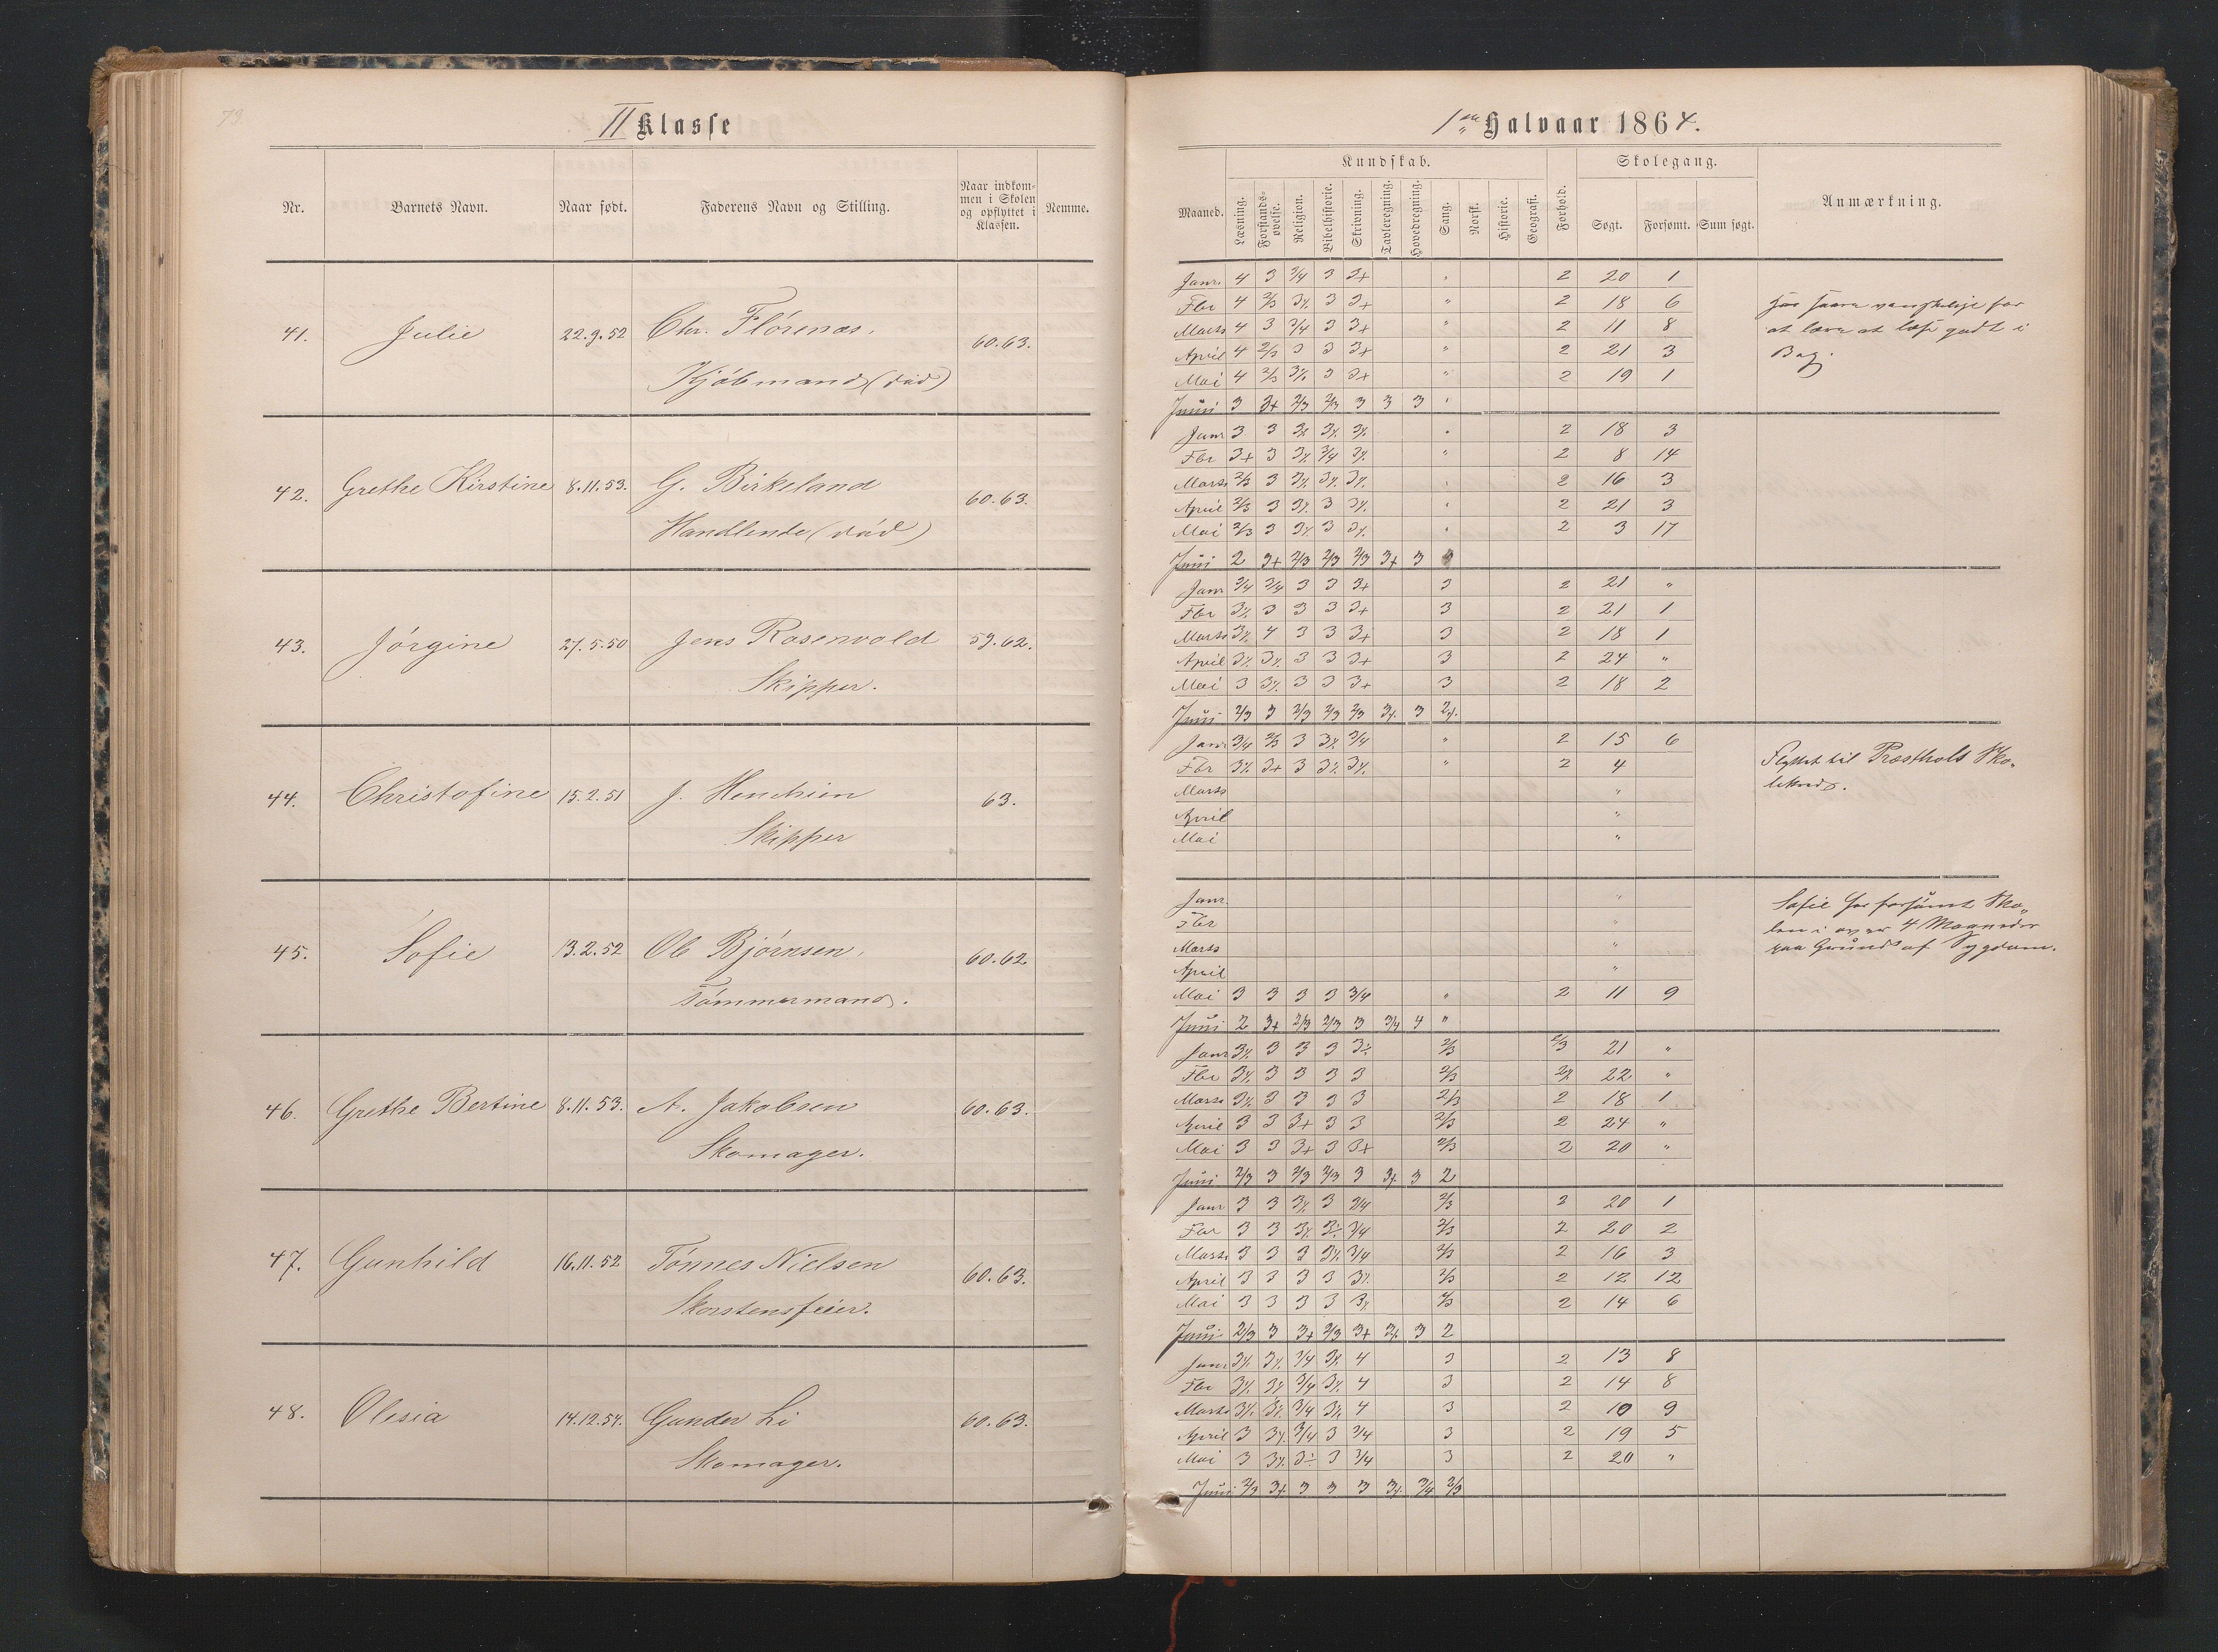 73
II Klasse
Nr. Barnets Navn. Naar født. Faderens Navn og Stilling. Naar indkom- Nemme.
men i Skolen
og opflyttet i
Klassen.
41. Julie 22.9.52 Chr. Flórenæs. 60.63.
Kjöbmand (död)
42. Grethe Kirstine 8.11.53. G. Birkeland 60.63.
Handlende (död)
43. Jórgine 27.5.50 Jens Rosenvold 59.62.
Skipper.
44. Christofine 15.2.51 J. 63.
Skipper
45. Sofie 13.2.52 Ole Bjórnsen. 60.62
Tómmermand.
46. Grethe Bertine 8.11.53. A. Jakobsen 60.63.
Skomager.
47. Gunhild 16.11.52 Tónnes Nielsen 60.63.
Skorstensfeier.
48. Olesia 14.12.54. Gunder Li 60.63.
Skomager.
1ste Halvaar 1864.
Kundskab. Skolegang.
Maaned. Læsning. Forstands-øvelse. Religion. Bibelhistorie. Skrivning. Tavleregning. Hovedregning. Sang. Norsk. Historie. Geografi. Forhold. Søgt. Forsømt. Sum søgt. Anmærkning.
Janr. 4 3 3/4 3 3+ " 2 20 1
Fbr 4 2/3 3% 3 3+ " 2 18 6
Marts 4 3 3/4 3 3+ " 2 11 8
April 4 2/3 3 3 3+ " 2 21 3
Mai 4 2/3 3% 3 3+ " 2 19 1
Juni 3 3+ 2/3 2/3 3 3 3 "
har svært vanskelige for
at lære at læse godt i
Bog.
Janr 3 3 3% 3% 3% " 2 18 3
Fbr 3+ 3 3% 3/4 3% " 2 8 14
Marts 2/3 3 3% 3% 3% " 2 16 3
April 2/3 3 3% 3 3% " 2 21 3
Mai 2/3 3 3% 3 3% " 2 3 17
Juni 2 3+ 2/3 2/3 2/3 3+ 3
Janr 3/4 3/4 3 3 3+ 3 2 21 "
Fbr 3% 3 3 3 3+ 3 2 21 1
Marts 3% 4 3 3 3+ 3 2 18 1
April 3% 3% 3 3 3+ 3 2 24 "
Mai 3 3% 3 3 3+ 3 2 18 2
Juni 2/3 3 2/3 2/3 2/3 3% 3 2%
Janr 3/4 2/3 3 3% 3/4 " 2 15 6
Fbr 3% 3+ 3 3% 3% " 2 4
Marts "
April "
Mai "
Flyttet til Præstholt Sko-
lekreds.
Janr. "
Fbr "
Marts "
April "
Mai 3 3 3 3 3/4 " 2 11 9
Juni 2 3+ 2/3 2/3 3 3/4 4 "
Sofie har forsömt Sko-
len i over 4 Maaneder
paa Grund af Sygdom.
Janr 3% 3 3 3 3÷ 2/3 2/3 21 "
Fbr 3% 3 3 3 3 2/3 2% 22 "
Marts 3% 3 3 3 3 2/3 2 18 1
April 3 3 3+ 3 3 2/3 2 24 "
Mai 3 3 3+ 3 3+ 2/3 2 20 "
Juni 2/3 3 2/3 2/3 3 3% 3 2
Janr 3 3 3% 3 3/4 2/3 2 20 1
Fbr 3 3 3% 3÷ 3/4 2/3 2 20 2
Marts 3 3 3 3% 3/4 2/3 2 16 3
April 3 3 3 3 3% 2/3 2 12 12
Mai 3 3 3 3 3% 2/3 2 14 6
Juni 2/3 3 3+ 2/3 3+ 3% 3 2
Janr 3% 3% 3/4 3% 4 3 2 13 8
Fbr 3% 3% 3/4 3% 4 3 2 14 8
Marts 3% 3% 3/4 3% 4 3 2 10 9
April 3 3% 3/4 3 3/4 3 2 19 5
Mai 3 3% 3÷ 3 3/4 3 2 20 "
Juni 2/3 3+ 3 3 3 3% 3/4 2/3